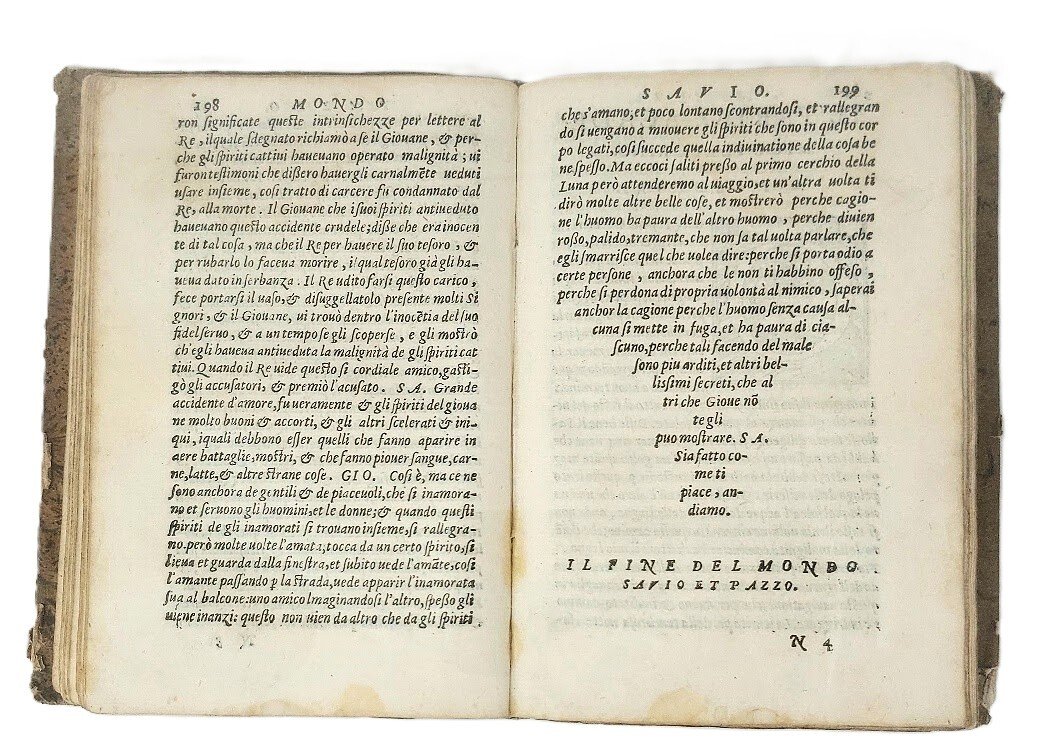 198 MONDO
ron significate queste intrinsichezze per lettere al
Re, ilquale sdegnato richiamò a se il Giouane, & per-
che gli spiriti cattiui haueuano operato malignità; ui
furon testimoni che dissero hauergli carnalmēte ueduti
usare insieme, cosi tratto di carcere fu condannato dal
Re, alla morte. Il Giouane che i suoi spiriti antiueduto
haueuano questo accidente crudele; disse che era inocen
te di tal cosa, ma che il Re per hauere il suo tesoro, &
per rubarlo lo faceua morire, il qual tesoro già gli ha-
ueua dato in serbanza. Il Re udito farsi questo carico,
fece portarsi il uaso, & disuggellatolo presente molti Si
gnori, & il Giouane, ui trouò dentro l'inocētia del suo
fidel seruo, & a un tempo se gli scoperse, e gli mostrò
ch'egli haueua antiueduta la malignità de gli spiriti cat
tiui. Quando il Re uide questo si cordiale amico, gasti-
gò gli accusatori, & premiò l'acusato. SA. Grande
accidente d'amore, fu ueramente & gli spiriti del gioua
ne molto buoni & accorti, & gli altri scelerati & ini-
qui, iquali debbono esser quelli che fanno aparire in
aere battaglie, mostri, & che fanno piouer sangue, car-
ne, latte, & altre strane cose. GIO. Cosi è, ma ce ne
sono anchora de gentili & de piaceuoli, che si inamora-
no et seruono gli huomini, et le donne; & quando questi
spiriti de gli inamorati si trouano insieme, si rallegra-
no. però molte uolte l'amata, tocca da un certo spirito, si
lieua et guarda dalla finestra, et subito uede l'amāte. cosi
l'amante passando p la strada, uede apparir l'inamorata
sua al balcone: uno amico Imaginandosi l'altro, spesso gli
uiene inanzi: questo non uien da altro che da gli spiriti
SAVIO. 199
che s'amano, et poco lontano scontrandosi, et rallegran
dosi uengano a muouere gli spiriti che sono in questo cor
po legati, cosi succede quella indiuinatione della cosa be
ne spesso. Ma eccoci saliti presso al primo cerchio della
Luna però attenderemo al uiaggio, et un'altra uolta ti
dirò molte altre belle cose, et mostrerò perche cagio-
ne l'huomo ha paura dell'altro huomo, perche diuien
rosso, palido, tremante, che non sa tal uolta parlare, che
egli smarrisce quel che uolea dire: perche si porta odio a
certe persone, anchora che le non ti habbino offeso,
perche si perdona di propria uolontà al nimico, saperai
anchor la cagione perche l'huomo senza causa al-
cuna si mette in fuga, et ha paura di cia-
scuno, perche tali facendo del male
sono piu arditi, et altri bel-
lissimi secreti, che al
tri che Gioue nō
te gli
puo mostrare. SA.
Sia fatto co-
me ti
piace, an-
diamo.
IL FINE DEL MONDO
SAVIO ET PAZZO.
N 4